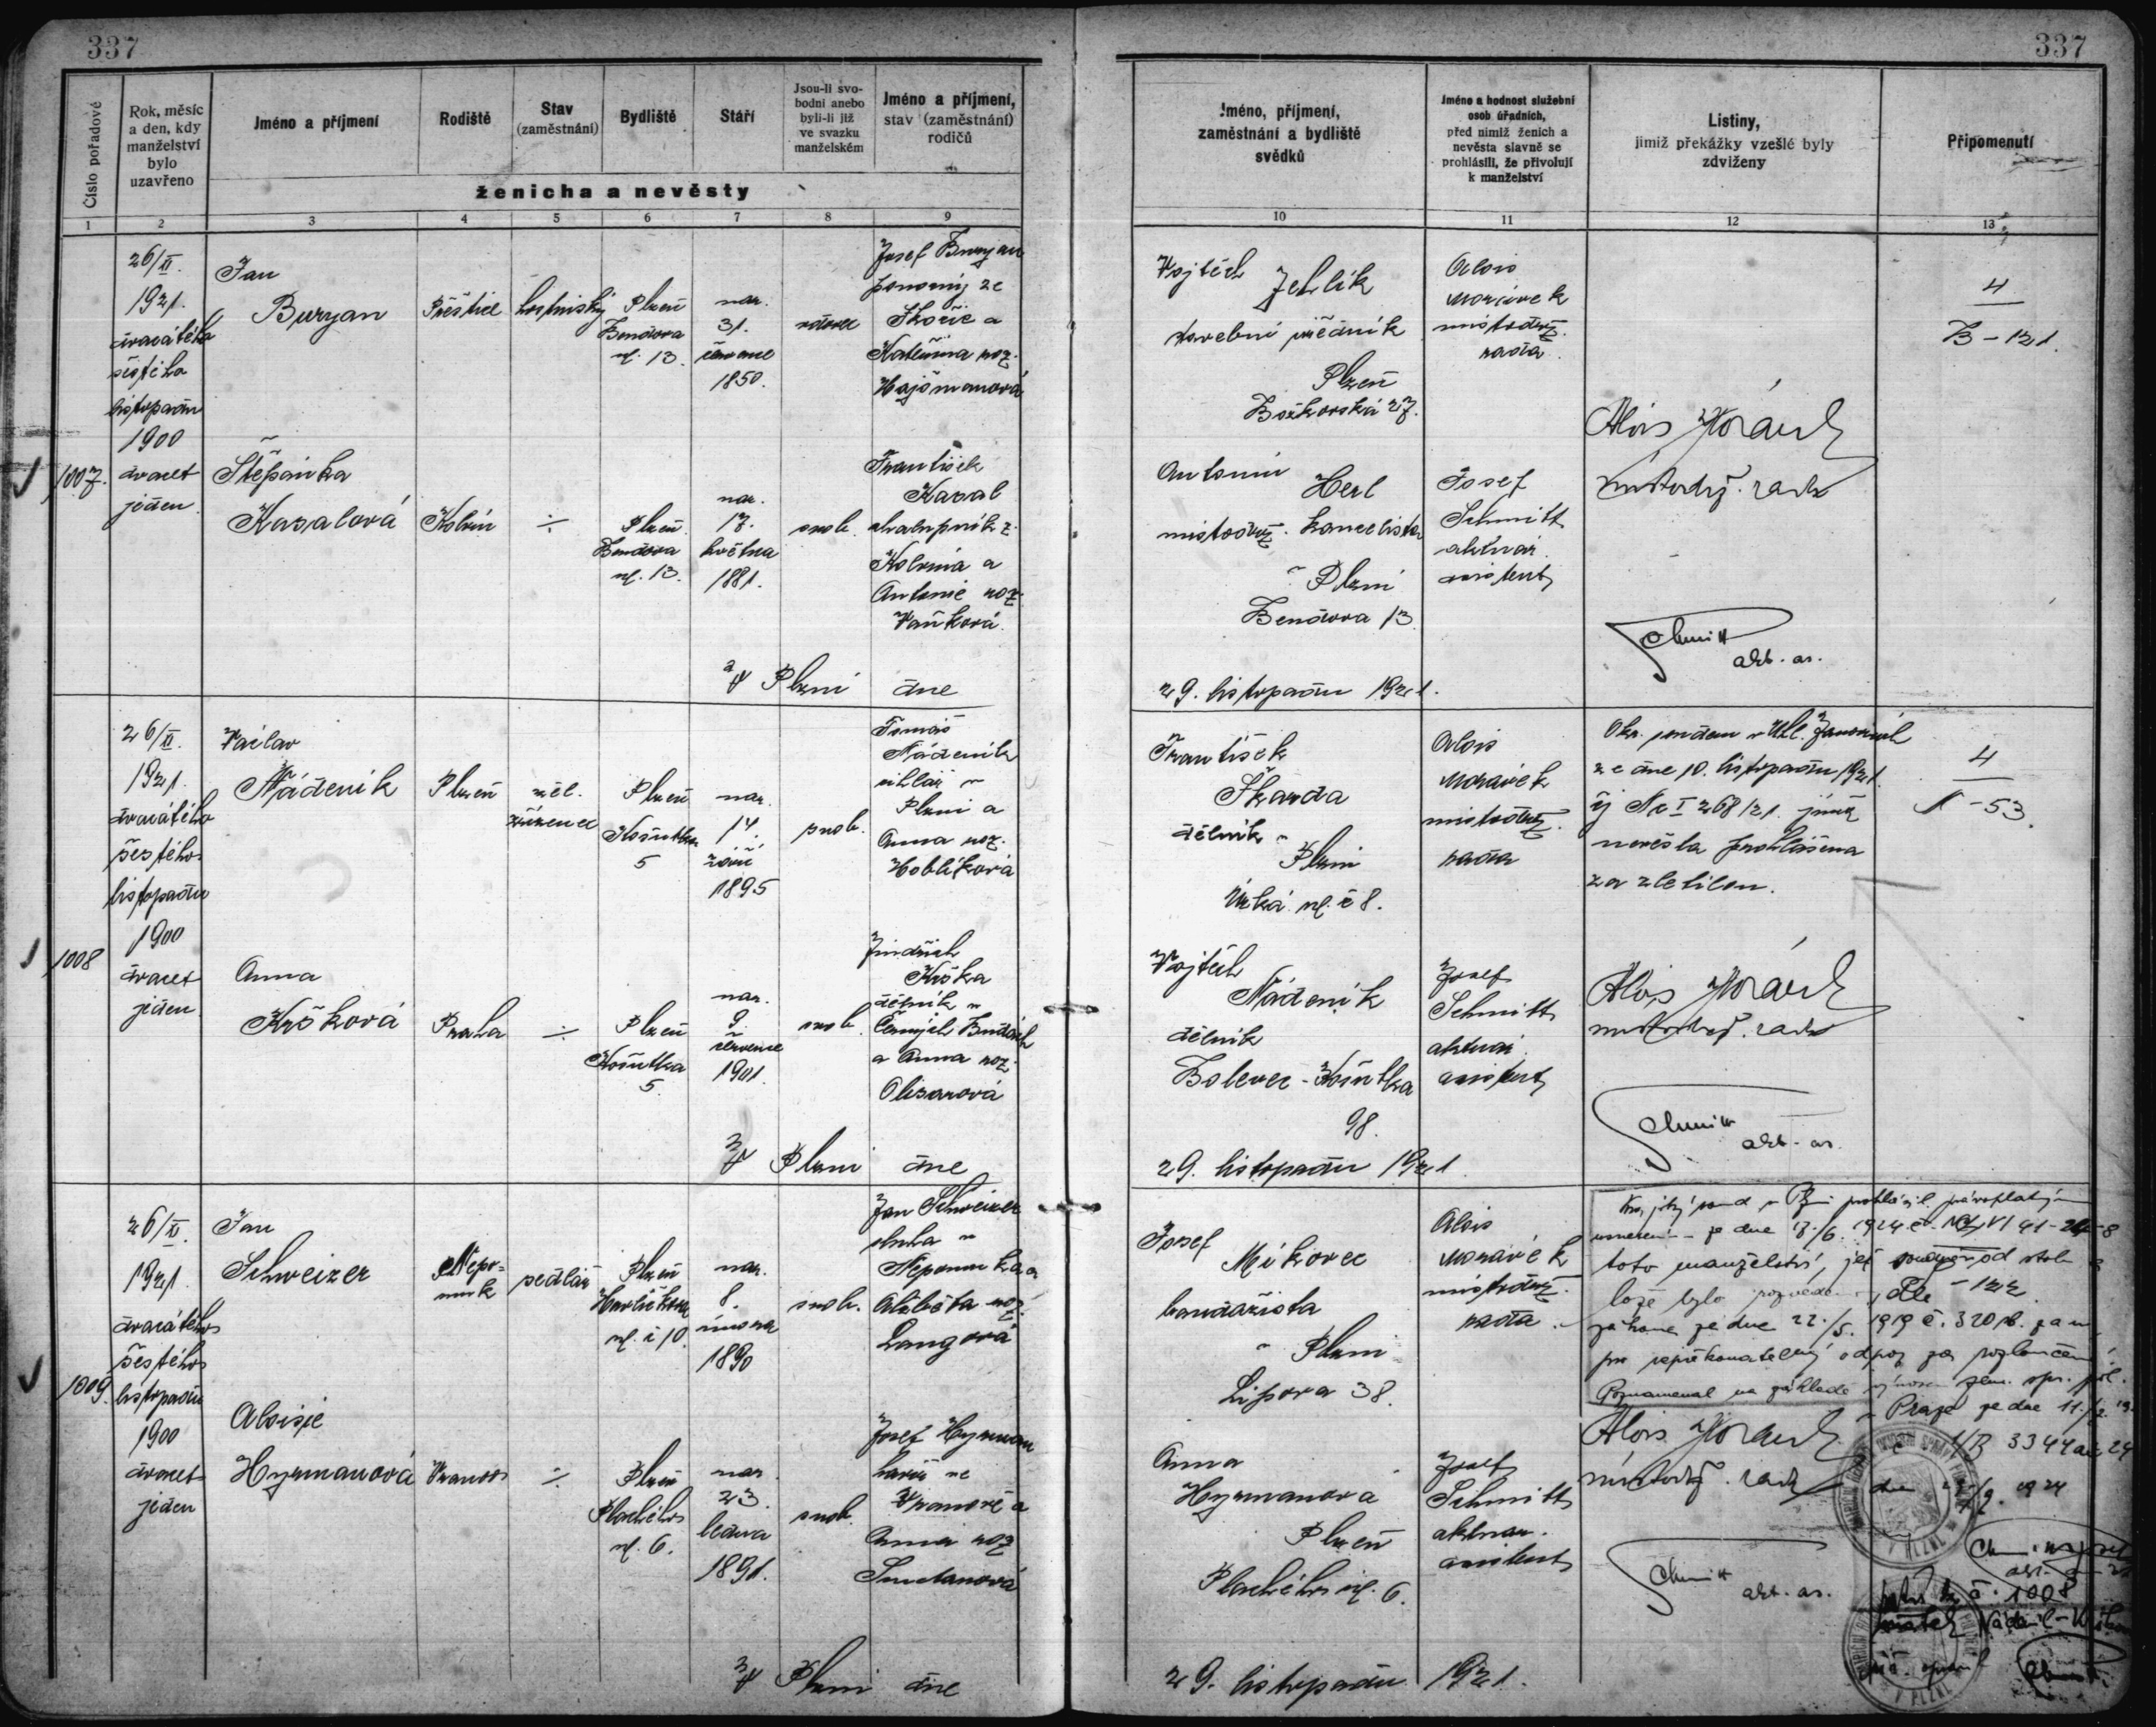 337
337
Číslo pořadové
Rok, měsíc
a den, kdy
manželství
bylo
uzavřeno
Jméno a příjmení
Rodiště
Stav
(zaměstnání)
Bydliště
Stáří
Jsou-li svo-
bodni anebo
byli-li již
ve svazku
manželském
Jméno a příjmení,
stav (zaměstnání)
rodičů
ženicha a nevěsty
Jméno, příjmení,
zaměstnání a bydliště
svědků
Jméno a hodnost služební
osob úřadních,
před nimiž ženich a
nevěsta slavně se
prohlásili, že přivolují
k manželství
Listiny,
jimiž překážky vzešlé byly
zdviženy
Připomenutí
1 2 3 4 5 6 7 8 9
10 11 12 13
1007.
26/XI.
1921.
dvacátého
šestého
listopadu
1900
dvacet
jeden
Jan
Buryan
Přeštice
hostinský
Plzeň
Bendova
ul. 13.
nar.
31.
července
1850.
vdovec
Josef Buryan
ponocný ze
Skočic a
Kateřina roz.
Hajšmanová
Štěpánka
Kasalová
Kolvín
÷
Plzeň
Bendova
ul. 13.
nar.
17.
května
1881.
svob.
František
Kasal
chalupník z
Kolvína a
Antonie roz.
Vaňková.
V Plzni dne
29. listopadu 1921.
Vojtěch
Jehlík
stavební úředník
Plzeň
Božkovská 27.
Alois
Morávek
místodrž.
rada.
4
B-121.
Antonín
Herl
místodrž. kancelista
v Plzni
Bendova 13.
Josef
Schmitt
aktuár.
asistent
Alois Morávek
místodrž. rada
Schmitt
akt. as.
1008
26/XI.
1921.
dvacátého
šestého
listopadu
1900
dvacet
jeden
Václav
Nádeník
Plzeň
žel.
zřízenec
Plzeň
Košutka
5
nar.
14.
září
1895
svob.
Tomáš
Nádeník
uhlíř v
Plzni a
Anna roz.
Hoblíková
Anna
Kršková
Praha
÷
Plzeň
Košutka
5.
nar.
9.
července
1901.
svob.
Jindřich
Krška
dělník v
Černých Budách
a Anna roz.
Olisarová
V Plzni dne
29. listopadu 1921
František
Škarda
dělník v
Plzni
Úzká ul. č 8.
Alois
Morávek
místodrž.
rada
Okr. soudem v Uhl. Janovicích
ze dne 10. listopadu 1921
čj Nc I 268/21. jímž
nevěsta prohlášena
za zletilou.
4
N-53.
Vojtěch
Nádeník
dělník
Bolevec - Košutka
98.
Josef
Schmitt
aktuár.
asistent
Alois Morávek
místodrž. rada
Schmitt
akt. as.
1009.
26/XI.
1921.
dvacátého
šestého
listopadu
1900
dvacet
jeden
Jan
Schweizer
Nepo-
muk
sedlář
Plzeň
Havlíčkova
ul. č 10.
nar.
8.
února
1890
svob.
Jan Schweizer
sluha v
Nepomuku a
Alžběta roz.
Langová
Aloisie
Hyrmanová
Vranov
÷
Plzeň
Plachého
ul. 6.
nar.
23.
ledna
1891.
svob.
Josef Hyrman
havíř ve
Vranově a
Anna roz
Smetanová
V Plzni dne
29. listopadu 1921.
Josef
Mikovec
bandažista
v Plzni
Lipova 38.
Alois
Morávek
místodrž.
rada.
Krajský soud v Plzni prohlásil právoplatným
usnesením ze dne 17./6. 1924 č.
toto manželství, jež od stolu a
lože bylo rozvedeno, dle
zákona ze dne 22./5. 1919 č. 320 sb. z. a n.
pro nepřekonatelný odpor za rozloučené
Poznamenal na základě výnosu zem. spr. pol.
v Praze ze dne 11./
Anna
Hyrmanova
Plzeň
Plachého ul. 6.
Josef
Schmitt
aktuar.
asistent
Alois Morávek
místodrž. rada
Schmitt
akt. as.
1924
č. 1008
V PLZNI
V PLZNI